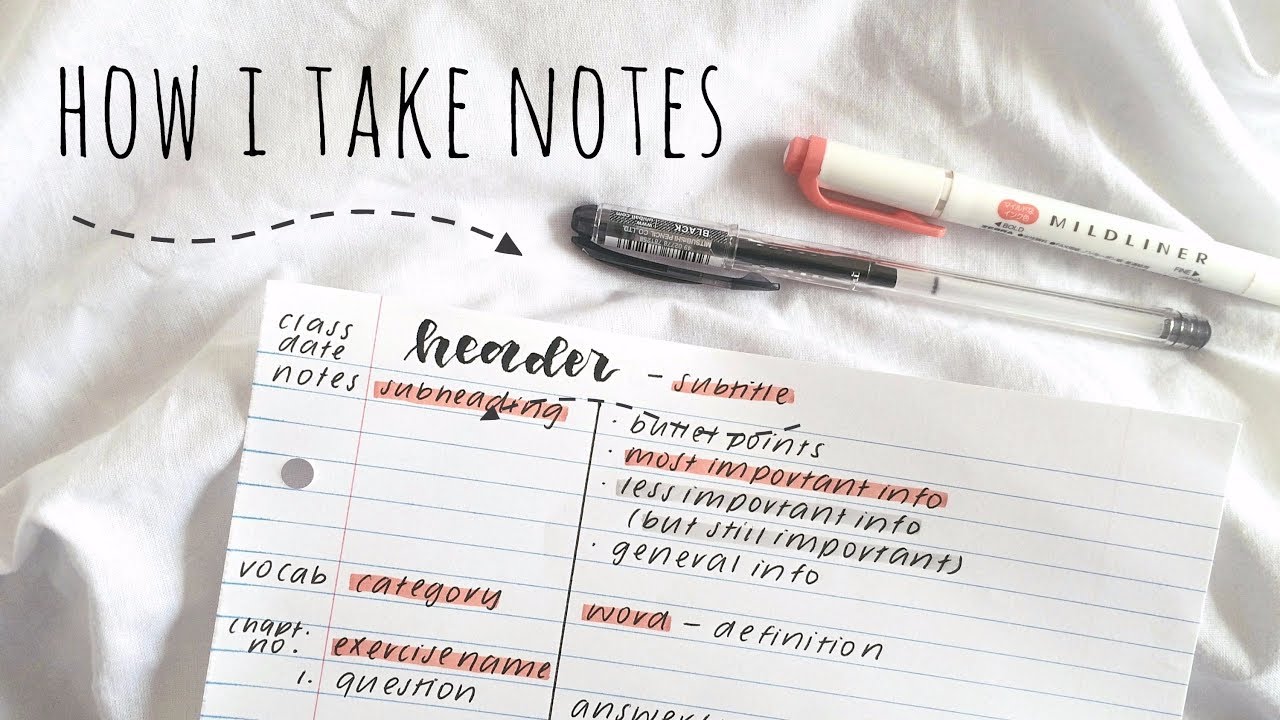 HOW I TAKE NOTES
MILDLINER
BOLD
FINE
BLACK
class
date
header – subtitle
notes
subheading
· bullet points
· most important info
· less important info
(but still important)
· general info
vocab
category
word – definition
chapt.
no.
exercise name
1. question